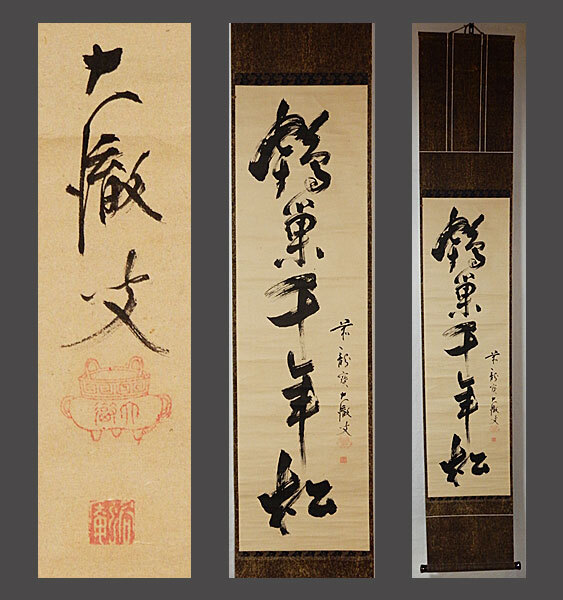 大徹叟
鶴巣千年松
龍寳大徹叟
鶴巣千年松
龍寳大徹叟